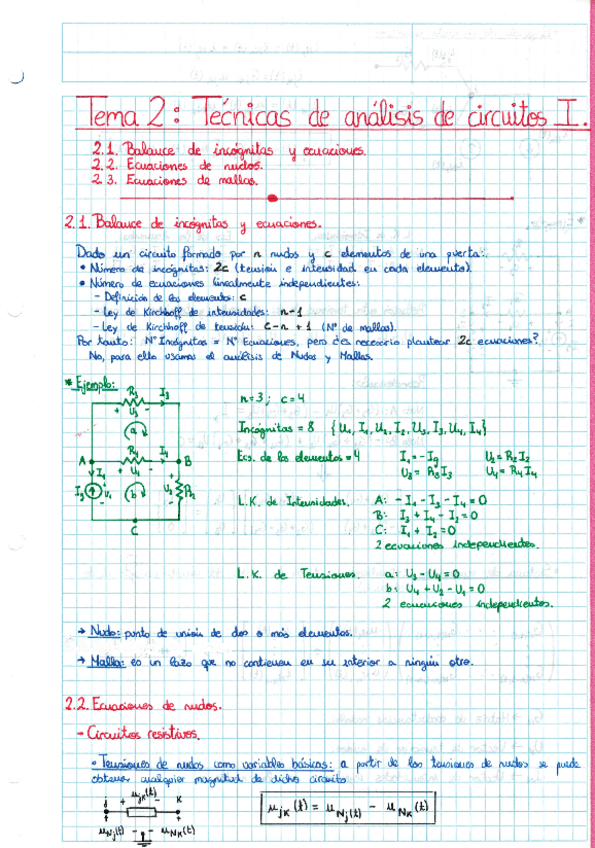 Tema 2: Técnicas de análisis de circuitos I.
2.1. Balance de incógnitas y ecuaciones.
2.2. Ecuaciones de nudos.
2.3. Ecuaciones de mallas.
2.1. Balance de incógnitas y ecuaciones.
Dado un circuito formado por n nudos y c elementos de una puerta:
• Número de incógnitas: 2c (tensión e intensidad en cada elemento).
• Número de ecuaciones linealmente independientes:
- Definición de los elementos: c
- Ley de Kirchhoff de intensidades: n-1
- Ley de Kirchhoff de tensión: c-n+1 (Nº de mallas).
Por tanto: Nº Incógnitas = Nº Ecuaciones, pero ¿es necesario plantear 2c ecuaciones?
No, para ello usamos el análisis de Nudos y Mallas.
* Ejemplo:
R3 I3
+ U3 -
a
R4 I4
A + U4 - B
I1
Ig U1 b U2 R2
C
n=3; c=4
Incógnitas = 8 {U1, I1, U2, I2, U3, I3, U4, I4}
Ecs. de los elementos = 4 I1 = -Ig U2 = R2 I2
U3 = R3 I3 U4 = R4 I4
L.K. de Intensidades. A: -I1 - I3 - I4 = 0
B: I3 + I4 - I2 = 0
C: I1 + I2 = 0
2 ecuaciones independientes.
L.K. de Tensiones. a: U3 - U4 = 0
b: U4 + U2 - U1 = 0
2 ecuaciones independientes.
→ Nudo: punto de unión de dos o más elementos.
→ Malla: es un lazo que no contienen en su interior a ningún otro.
2.2. Ecuaciones de nudos.
- Circuitos resistivos.
• Tensiones de nudos como variables básicas: a partir de las tensiones de nudos se puede
obtener cualquier magnitud de dicho circuito
j + ujk(t) - k
uNj(t) - uNk(t)
ujk(t) = uNj(t) - uNk(t)